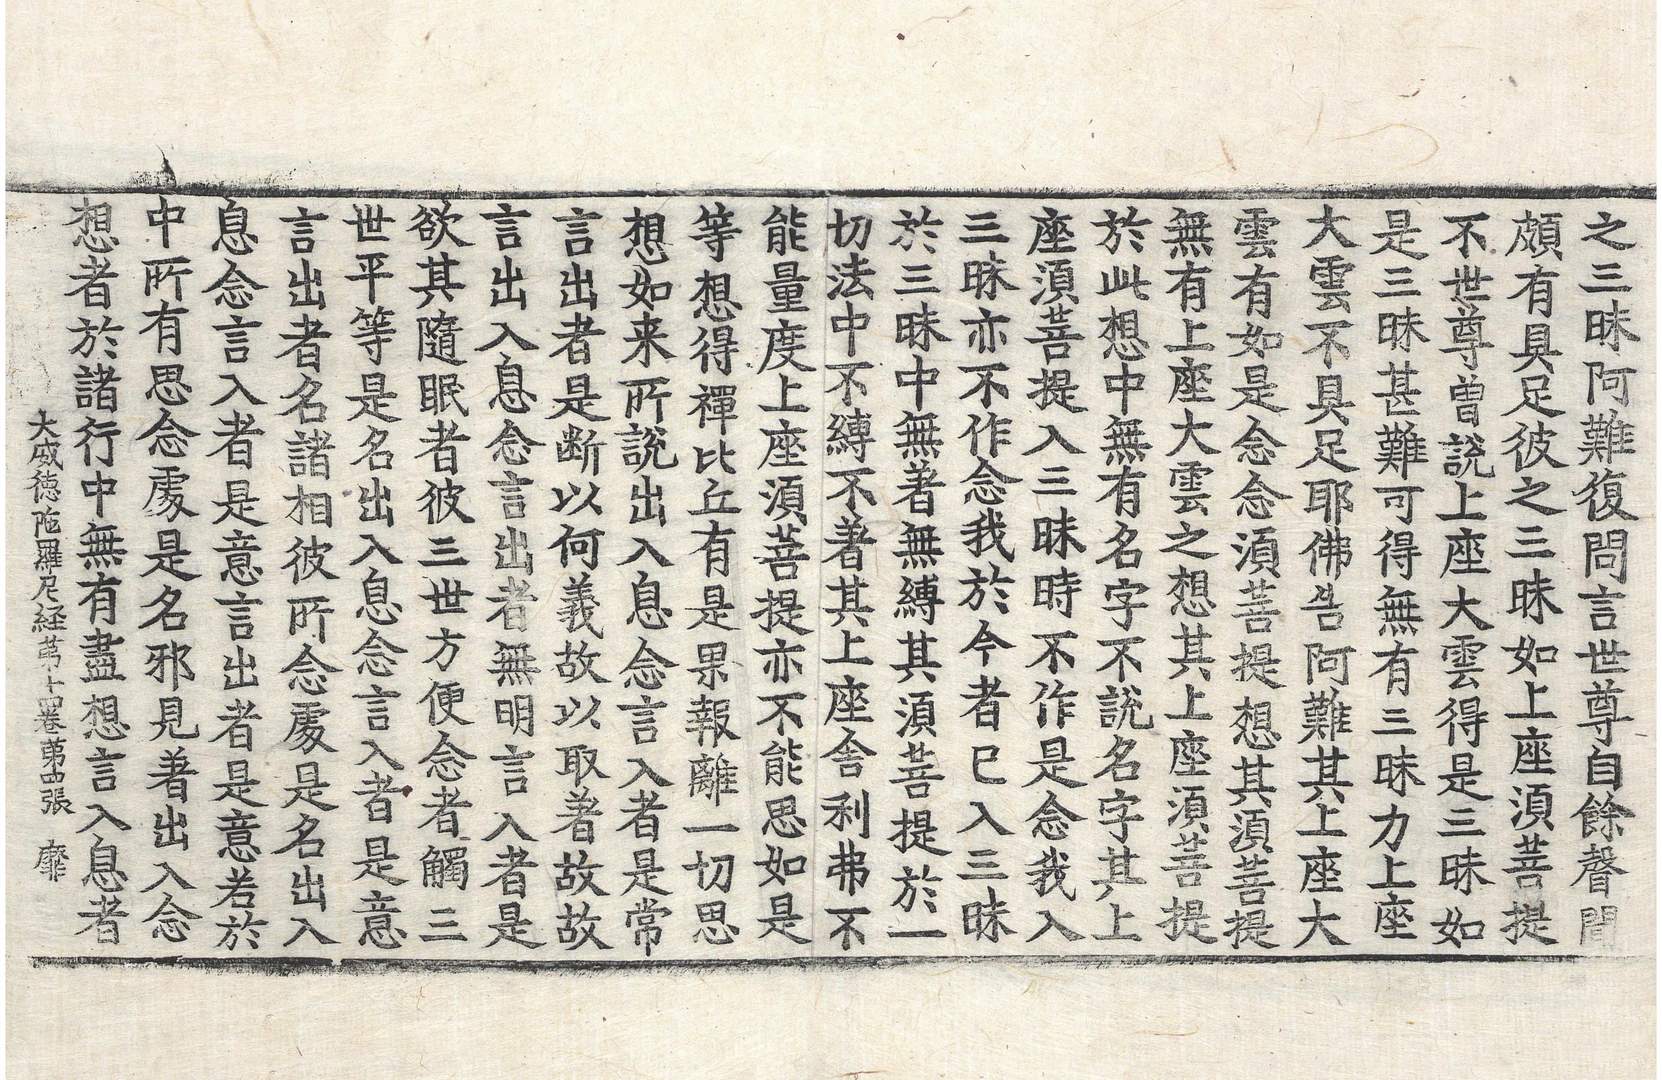 之三昧阿難復問言世尊自餘聲聞
頗有具足彼之三昧如上座湏菩提
不世尊曾說上座大雲得是三昧如
是三昧甚難可得無有三昧力上座
大雲不具足耶佛告阿難其上座大
雲有如是念念湏菩提想其湏菩提
無有上座大雲之想其上座湏菩提
於此想中無有名字不說名字其上
座湏菩提入三昧時不作是念我入
三昧亦不作念我於今者已入三昧
於三昧中無著無縛其湏菩提於一
切法中不縛不著其上座舍利弗不
能量度上座湏菩提亦不能思如是
等想得禪比丘有是果報離一切思
想如来所說出入息念言入者是常
言出者是断以何義故以取著故故
言出入息念言出者無明言入者是
欲其隨眠者彼三世方便念者觸三
世平等是名出入息念言入者是意
言出者名諸相彼所念處是名出入
息念言入者是意言出者是意若於
中所有思念處是名邪見著出入念
想者於諸行中無有盡想言入息者
大威德陁羅尼経苐十四卷苐四張 靡